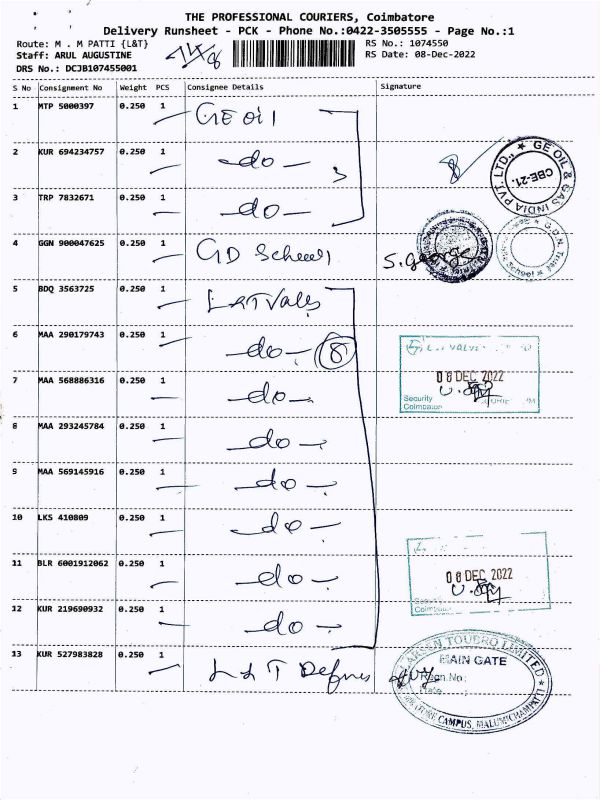 THE PROFESSIONAL COURIERS, Coimbatore
Delivery Runsheet - PCK - Phone No.:0422-3505555 - Page No.:1
Route: M . M PATTI {L&T} RS No.: 1074550
Staff: ARUL AUGUSTINE RS Date: 08-Dec-2022
DRS No.: DCJB107455001
S No Consignment No Weight PCS Consignee Details Signature
1 MTP 5000397 0.250 1 GE Oil
2 KUR 694234757 0.250 1 -do- 3
GE OIL & GAS INDIA PVT. LTD., ★ CBE-21.
3 TRP 7832671 0.250 1 -do-
4 GGN 900047625 0.250 1 GD School S. George
G.D.N. Trust
School
5 BDQ 3563725 0.250 1 L&T Valves
6 MAA 290179743 0.250 1 -do- 8
VALVE
08 DEC 2022
Security
Coimbator
7 MAA 568886316 0.250 1 -do-
8 MAA 293245784 0.250 1 -do-
9 MAA 569145916 0.250 1 -do-
10 LKS 410809 0.250 1 -do-
11 BLR 6001912062 0.250 1 -do-
08 DEC 2022
Security
Coimb
12 KUR 219690932 0.250 1 -do-
13 KUR 527983828 0.250 1 L&T Defence
LARSEN TOUBRO LIMITED
MAIN GATE
Regn No:
Date
CAMPUS, MALUMICHAMPATTI